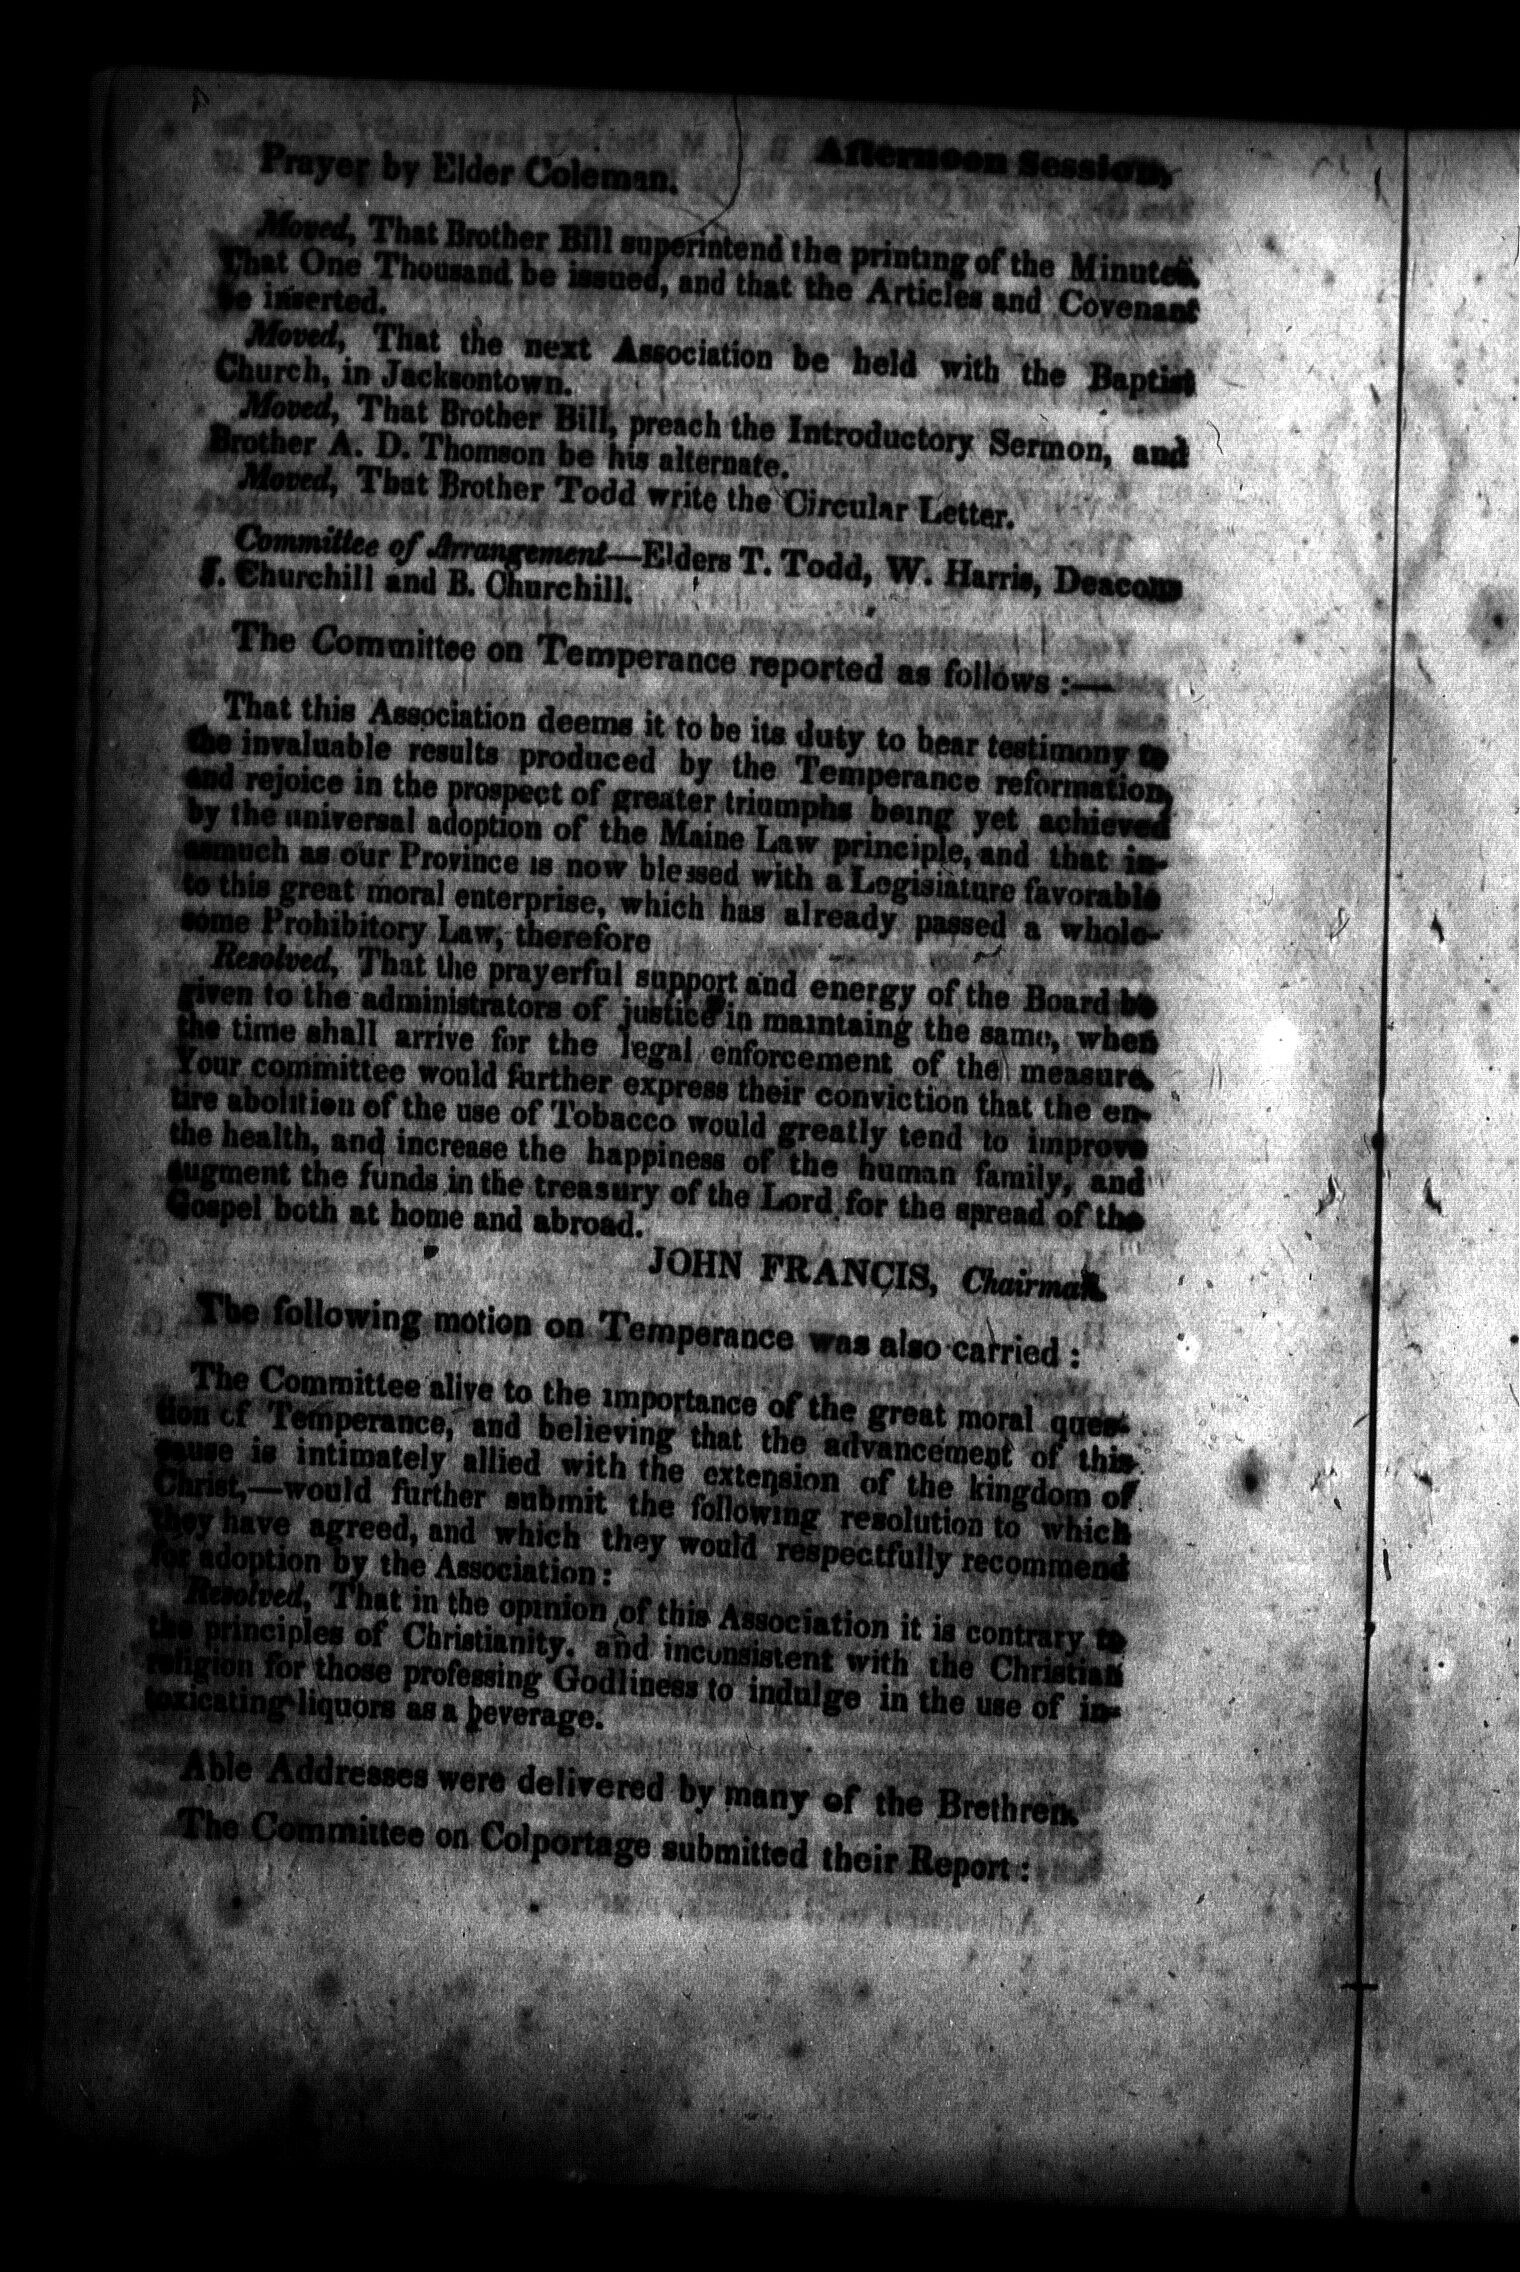 Afternoon Session,
Prayer by Elder Coleman.
Moved, That Brother Bill superintend the printing of the Minutes.
That One Thousand be issued, and that the Articles and Covenant
be inserted.
Moved, That the next Association be held with the Baptist
Church, in Jacksontown.
Moved, That Brother Bill, preach the Introductory Sermon, and
Brother A. D. Thomson be his alternate.
Moved, That Brother Todd write the Circular Letter.
Committee of Arrangement—Elders T. Todd, W. Harris, Deacons
J. Churchill and B. Churchill.
The Committee on Temperance reported as follows :—
That this Association deems it to be its duty to bear testimony to
the invaluable results produced by the Temperance reformation,
and rejoice in the prospect of greater triumphs being yet achieved
by the universal adoption of the Maine Law principle, and that in-
asmuch as our Province is now blessed with a Legislature favorable
to this great moral enterprise, which has already passed a whole-
some Prohibitory Law, therefore
Resolved, That the prayerful support and energy of the Board be
given to the administrators of justice in maintaing the same, when
the time shall arrive for the legal enforcement of the measure.
Your committee would further express their conviction that the en-
tire abolition of the use of Tobacco would greatly tend to improve
the health, and increase the happiness of the human family, and
augment the funds in the treasury of the Lord for the spread of the
Gospel both at home and abroad.
JOHN FRANCIS, Chairman.
The following motion on Temperance was also carried :
The Committee alive to the importance of the great moral ques-
tion of Temperance, and believing that the advancement of this
cause is intimately allied with the extension of the kingdom of
Christ,—would further submit the following resolution to which
they have agreed, and which they would respectfully recommend
for adoption by the Association :
Resolved, That in the opinion of this Association it is contrary to
the principles of Christianity. and inconsistent with the Christian
religion for those professing Godliness to indulge in the use of in-
toxicating liquors as a beverage.
Able Addresses were delivered by many of the Brethren.
The Committee on Colportage submitted their Report :